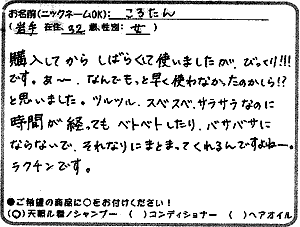 お名前(ニックネームOK): ころたん
(岩手 在住、32歳、性別: 女 )
購入してから しばらくして使いましたが、びっくり!!!
です。あ〜、なんでもっと早く使わなかったのかしら!?
と思いました。ツルツル、スベスベ、サラサラなのに
時間が経っても ベトベトしたり、バサバサに
ならないで、それなりにまとまってくれるんですよねー。
ラクチンです。
●ご希望の商品に○をお付けください!
(○)天眼ル霜ノシャンプー ( )コンディショナー ( )ヘアオイル